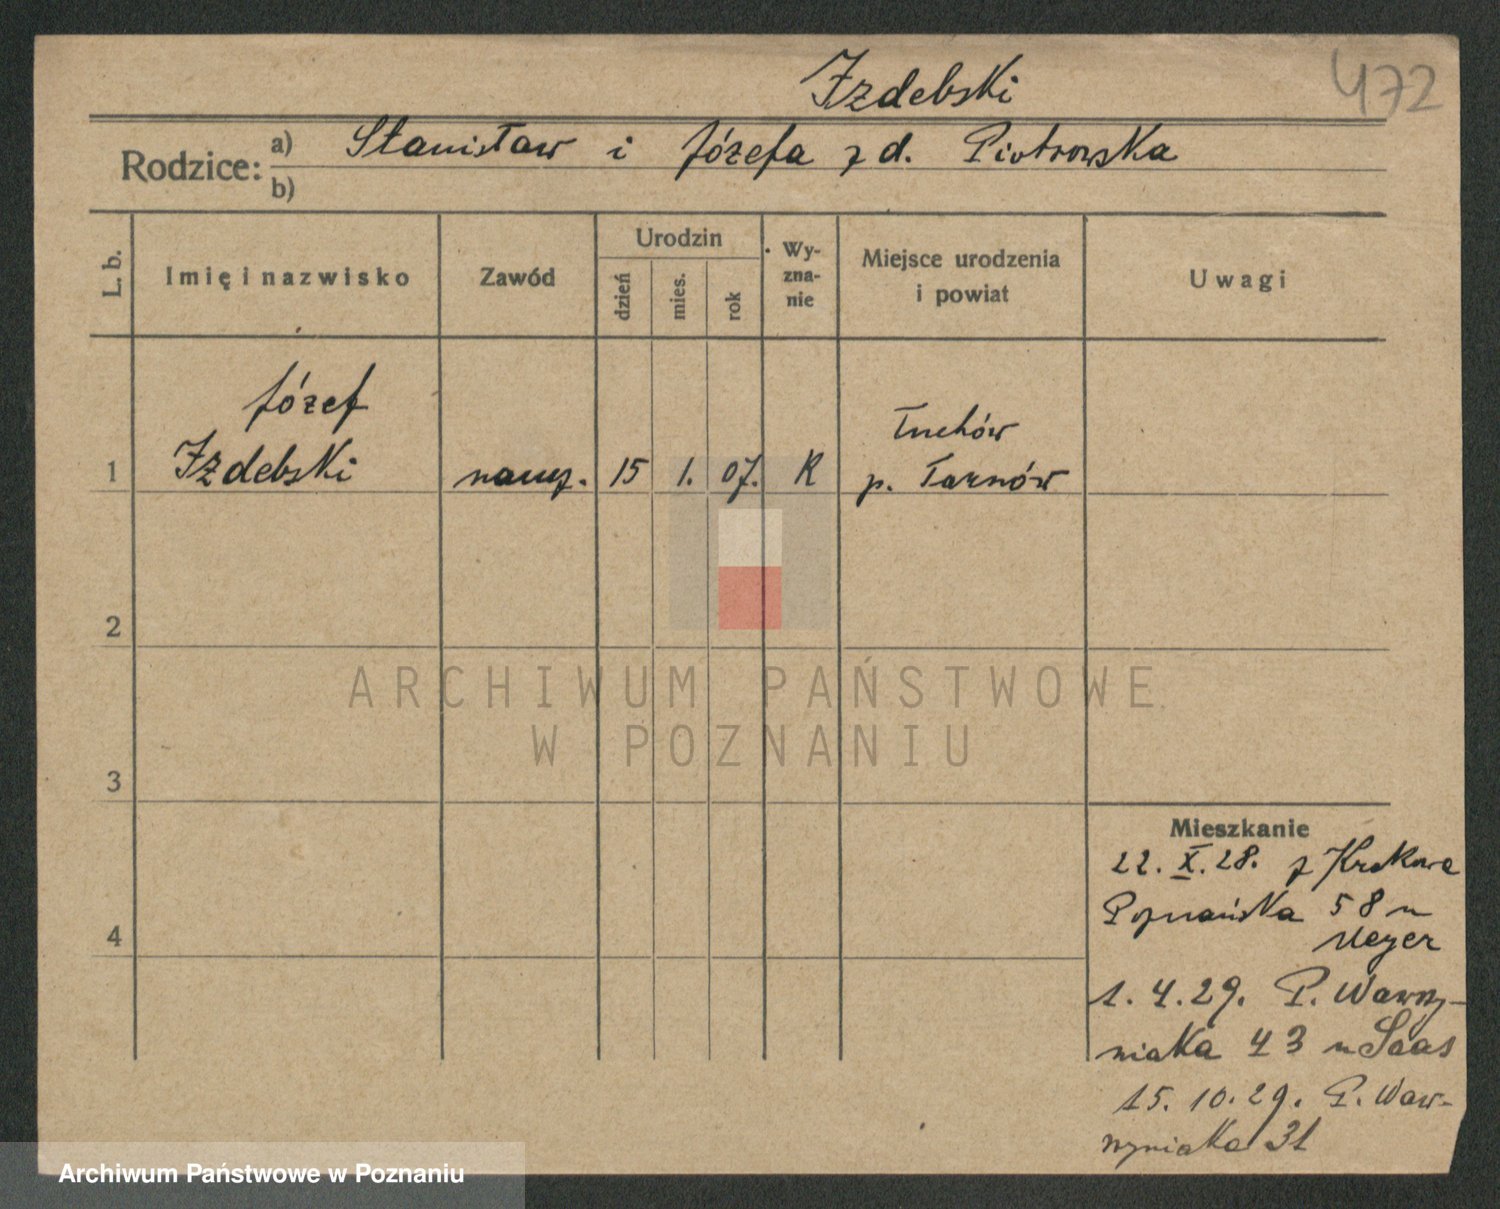 Izdebski
472
Rodzice: a) Stanisław i Józefa z d. Piotrowska
b)
L. b.
Imię i nazwisko
Zawód
Urodzin
dzień
mies.
rok
Wy-
zna-
nie
Miejsce urodzenia
i powiat
Uwagi
Józef
Izdebski
1
naucz.
15
1.
07.
R
Tuchów
p. Tarnów
2
3
4
ARCHIWUM PAŃSTWOWE
W POZNANIU
Mieszkanie
22. X. 28. z Krakowa
Poznańska 58 u
Meyer
1. 4. 29. P. Wawrzy-
niaka 43 u Saas
15. 10. 29. P. Waw-
rzyniaka 31
Archiwum Państwowe w Poznaniu